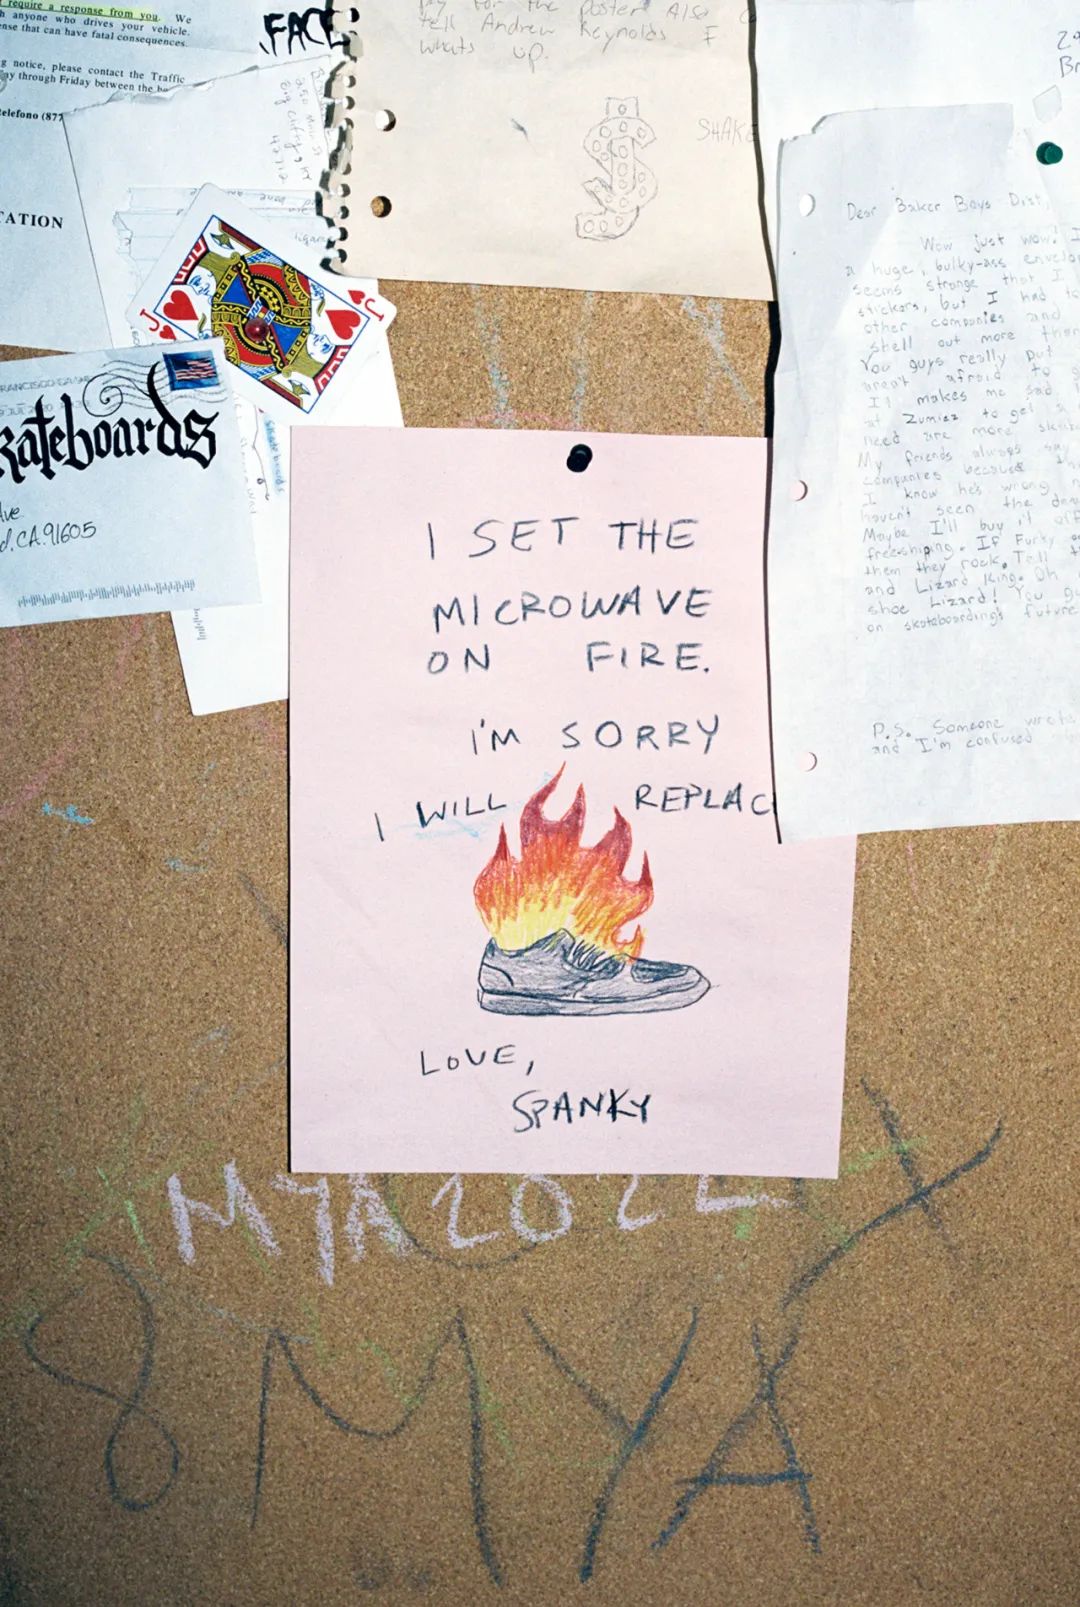 require a response from you. We
anyone who drives your vehicle.
that can have fatal consequences.
notice, please contact the Traffic
through Friday between the
telefono (877
FACE
for the poster Also
tell Andrew Reynolds I
whats up.
SHAKE
J
J
kateboards
Ave
d. CA. 91605
skateboards
Dear Baker Boys Dist,
Wow just wow! I
a huge, bulky-ass envelop
seems strange that I
stickers, but I had to
other companies and
shell out more than
You guys really put
aren't afraid to
It makes me sad
at Zumiez to get a
need are more skate
My friends always say
companies because
I know he's wrong
haven't seen the
Maybe I'll buy it off
free shipping. If Furky
them they rock. Tell
and Lizard King. Oh
shoe Lizard! You
on skateboarding's future
P.S. Someone wrote
and I'm confused
I SET THE
MICROWAVE
ON FIRE.
I'M SORRY
I WILL REPLAC
LOVE,
SPANKY
MYA 2022
8MYA